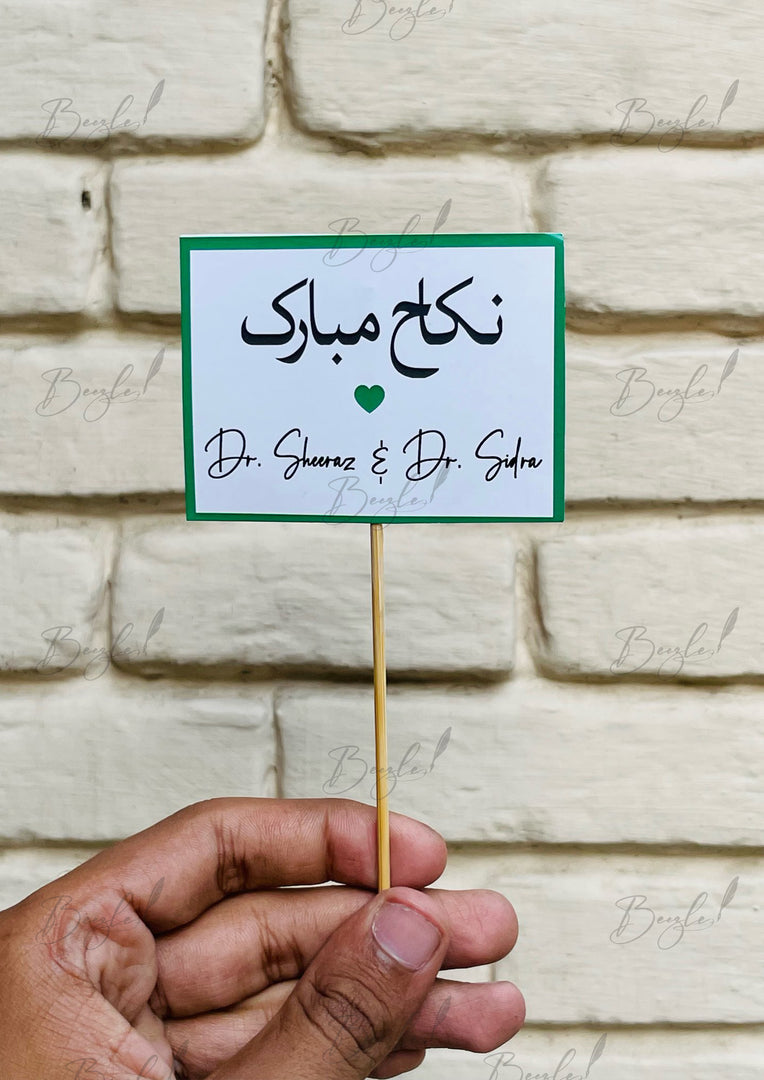 نکاح مبارک
Dr. Sheeraz & Dr. Sidra
Beezle